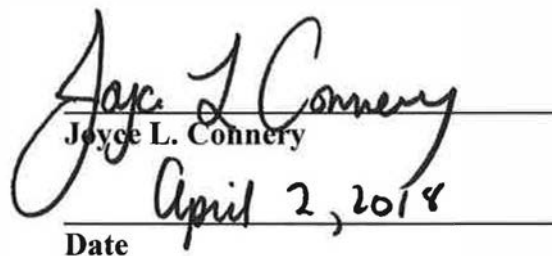 Joyce L Connery
Joyce L. Connery
April 2, 2018
Date